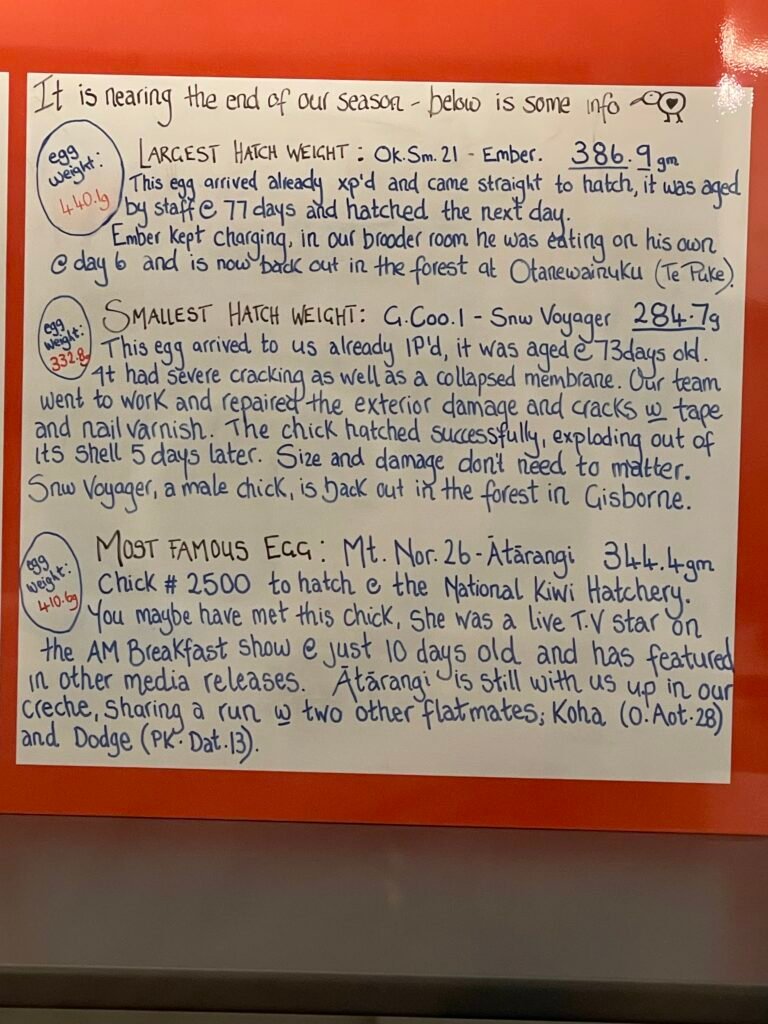 It is nearing the end of our season - below is some info
egg weight: 440.1g
LARGEST HATCH WEIGHT: OK.Sm.21 - Ember. 386.9gm
This egg arrived already xp'd and came straight to hatch, it was aged
by staff @ 77 days and hatched the next day.
Ember kept charging, in our brooder room he was eating on his own
@ day 6 and is now back out in the forest at Otanewainuku (Te Puke).
egg weight: 332.8g
SMALLEST HATCH WEIGHT: G.Coo.1 - Snw Voyager 284.7g
This egg arrived to us already IP'd, it was aged @ 73days old.
It had severe cracking as well as a collapsed membrane. Our team
went to work and repaired the exterior damage and cracks w tape
and nail varnish. The chick hatched successfully, exploding out of
its shell 5 days later. Size and damage don't need to matter.
Snw Voyager, a male chick, is back out in the forest in Gisborne.
egg weight: 410.6g
MOST FAMOUS EGG: Mt. Nor. 26 - Ātārangi 344.4gm
Chick # 2500 to hatch @ the National Kiwi Hatchery.
You maybe have met this chick, She was a live T.V star on
the AM Breakfast show @ just 10 days old and has featured
in other media releases. Ātārangi is still with us up in our
creche, sharing a run w two other flatmates; Koha (O.Aot.28)
and Dodge (PK.Dat.13).